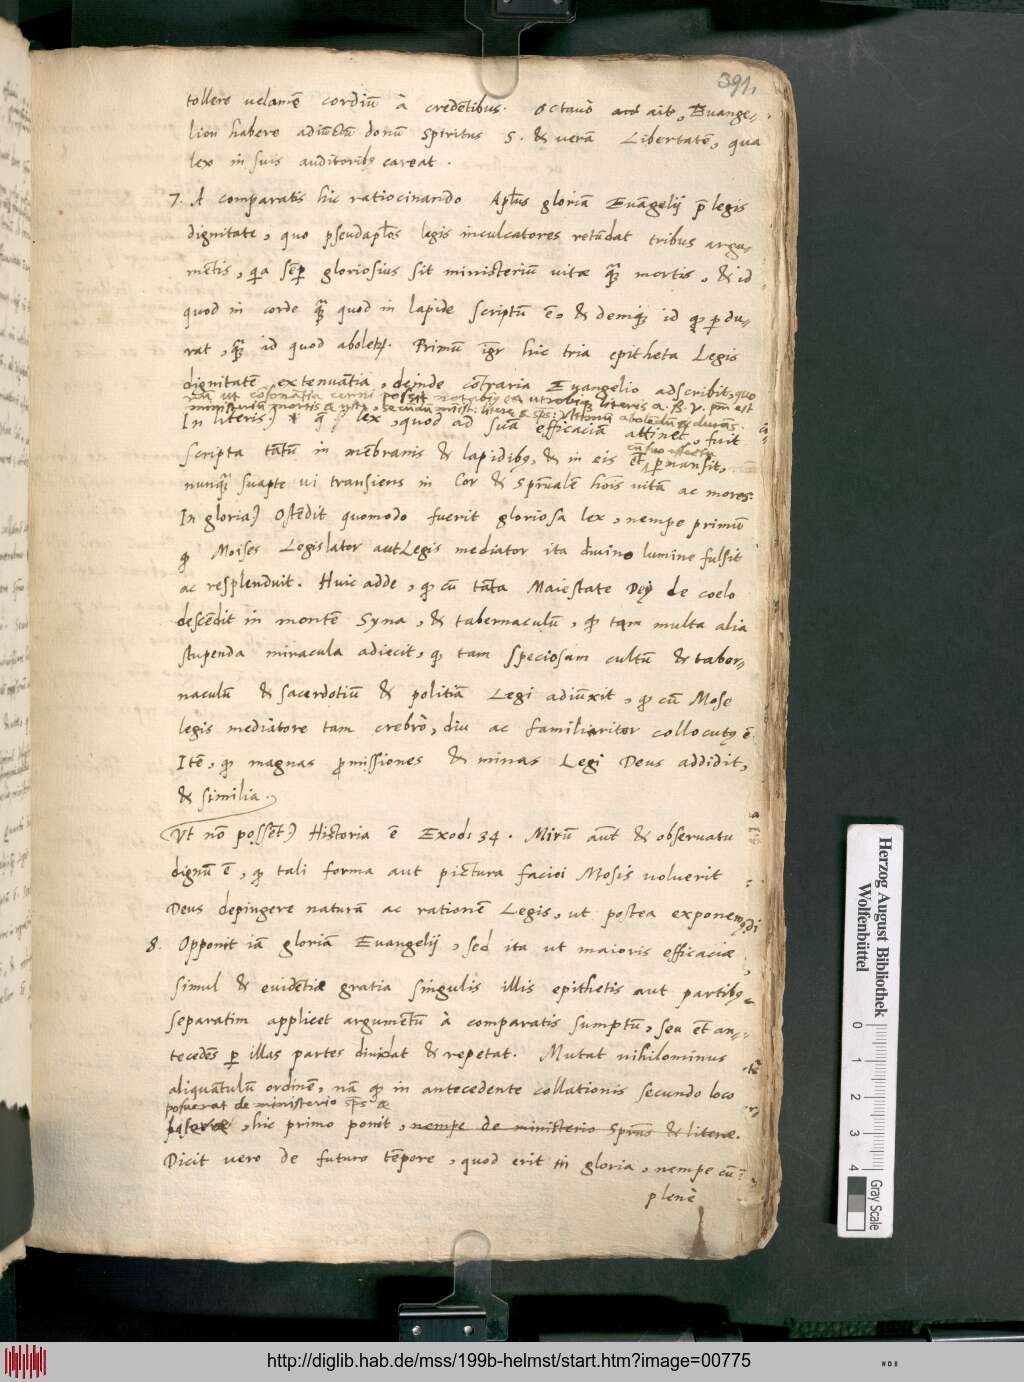 391.
tollere uelamē cordiū à credētibus. Octauò ait, Euange-
lion habere adiūctū donū Spiritus S. & uerā Libertatē, qua
lex in suis auditorib9 careat.
7. A comparatis hic ratiocinando Apl̄us gloriā Euāgelij p̄ legis
dignitate, quo pseudapl̄os legis inculcatores retūdat tribus argu-
mētis, qa sēp gloriosius sit ministeriū uitæ quā mortis, & id
quod in corde quā quod in lapide scriptū ē, & deniq id qd perdu-
rat, quā id quod aboletr. Primū igr hic tria epitheta Legis
dignitatē extenuātia, deinde cōtraria Euangelio adscribit,
In literis) i. q lex, quod ad suā efficaciā attinet, fuit
cū suo effectu
scripta tātū in mēbranis & lapidib9, & in eis et pmansit,
nunquā suapte ui transiens in Cor & spūalē hoīs uitā ac mores.
In gloria) Ostēdit quomodo fuerit gloriosa lex, nempe primū
qd Moises Legislator aut Legis mediator ita diuino lumine fulsit
ac resplenduit. Huic adde, qd cū tāta Maiestate Dei de coelo
descēdit in montē Syna, & tabernaculū, qd tam multa alia
stupenda miracula adiecit, qd tam speciosam cultū & taber-
naculū & sacerdotiū & politiā Legi adiūxit, qd cū Mose
legis mediatore tam crebrò, diu ac familiariter collocut9 ē.
Itē, qd magnas pmissiones & minas Legi Deus addidit,
& similia.
Vt nō possēt) Historia ē Exodi 34. Mirū aūt & obseruatu
dignū ē, qd tali forma aut pictura faciei Mosis uoluerit
Deus depingere naturā ac rationē Legis, ut postea exponem9
8. Opponit iā gloriā Euangelij, sed ita ut maioris efficaciæ
simul & euidētiæ gratia singulis illis epithetis aut partib9
separatim applicet argumētū à comparatis sumptū, seu et an-
tecedēs p illas partes diuidat & repetat. Mutat nihilominus
aliquātulū ordinē, nā qd in antecedente collationis secundo loco
posuerat de ministerio
, hic primo ponit, nempe de ministerio Spūs & literæ.
Dicit uero de futuro tēpore, quod erit in gloria, nempe cū
plenè
Herzog August Bibliothek
Wolfenbüttel
0 1 2 3 4
Gray Scale
http://diglib.hab.de/mss/199b-helmst/start.htm?image=00775